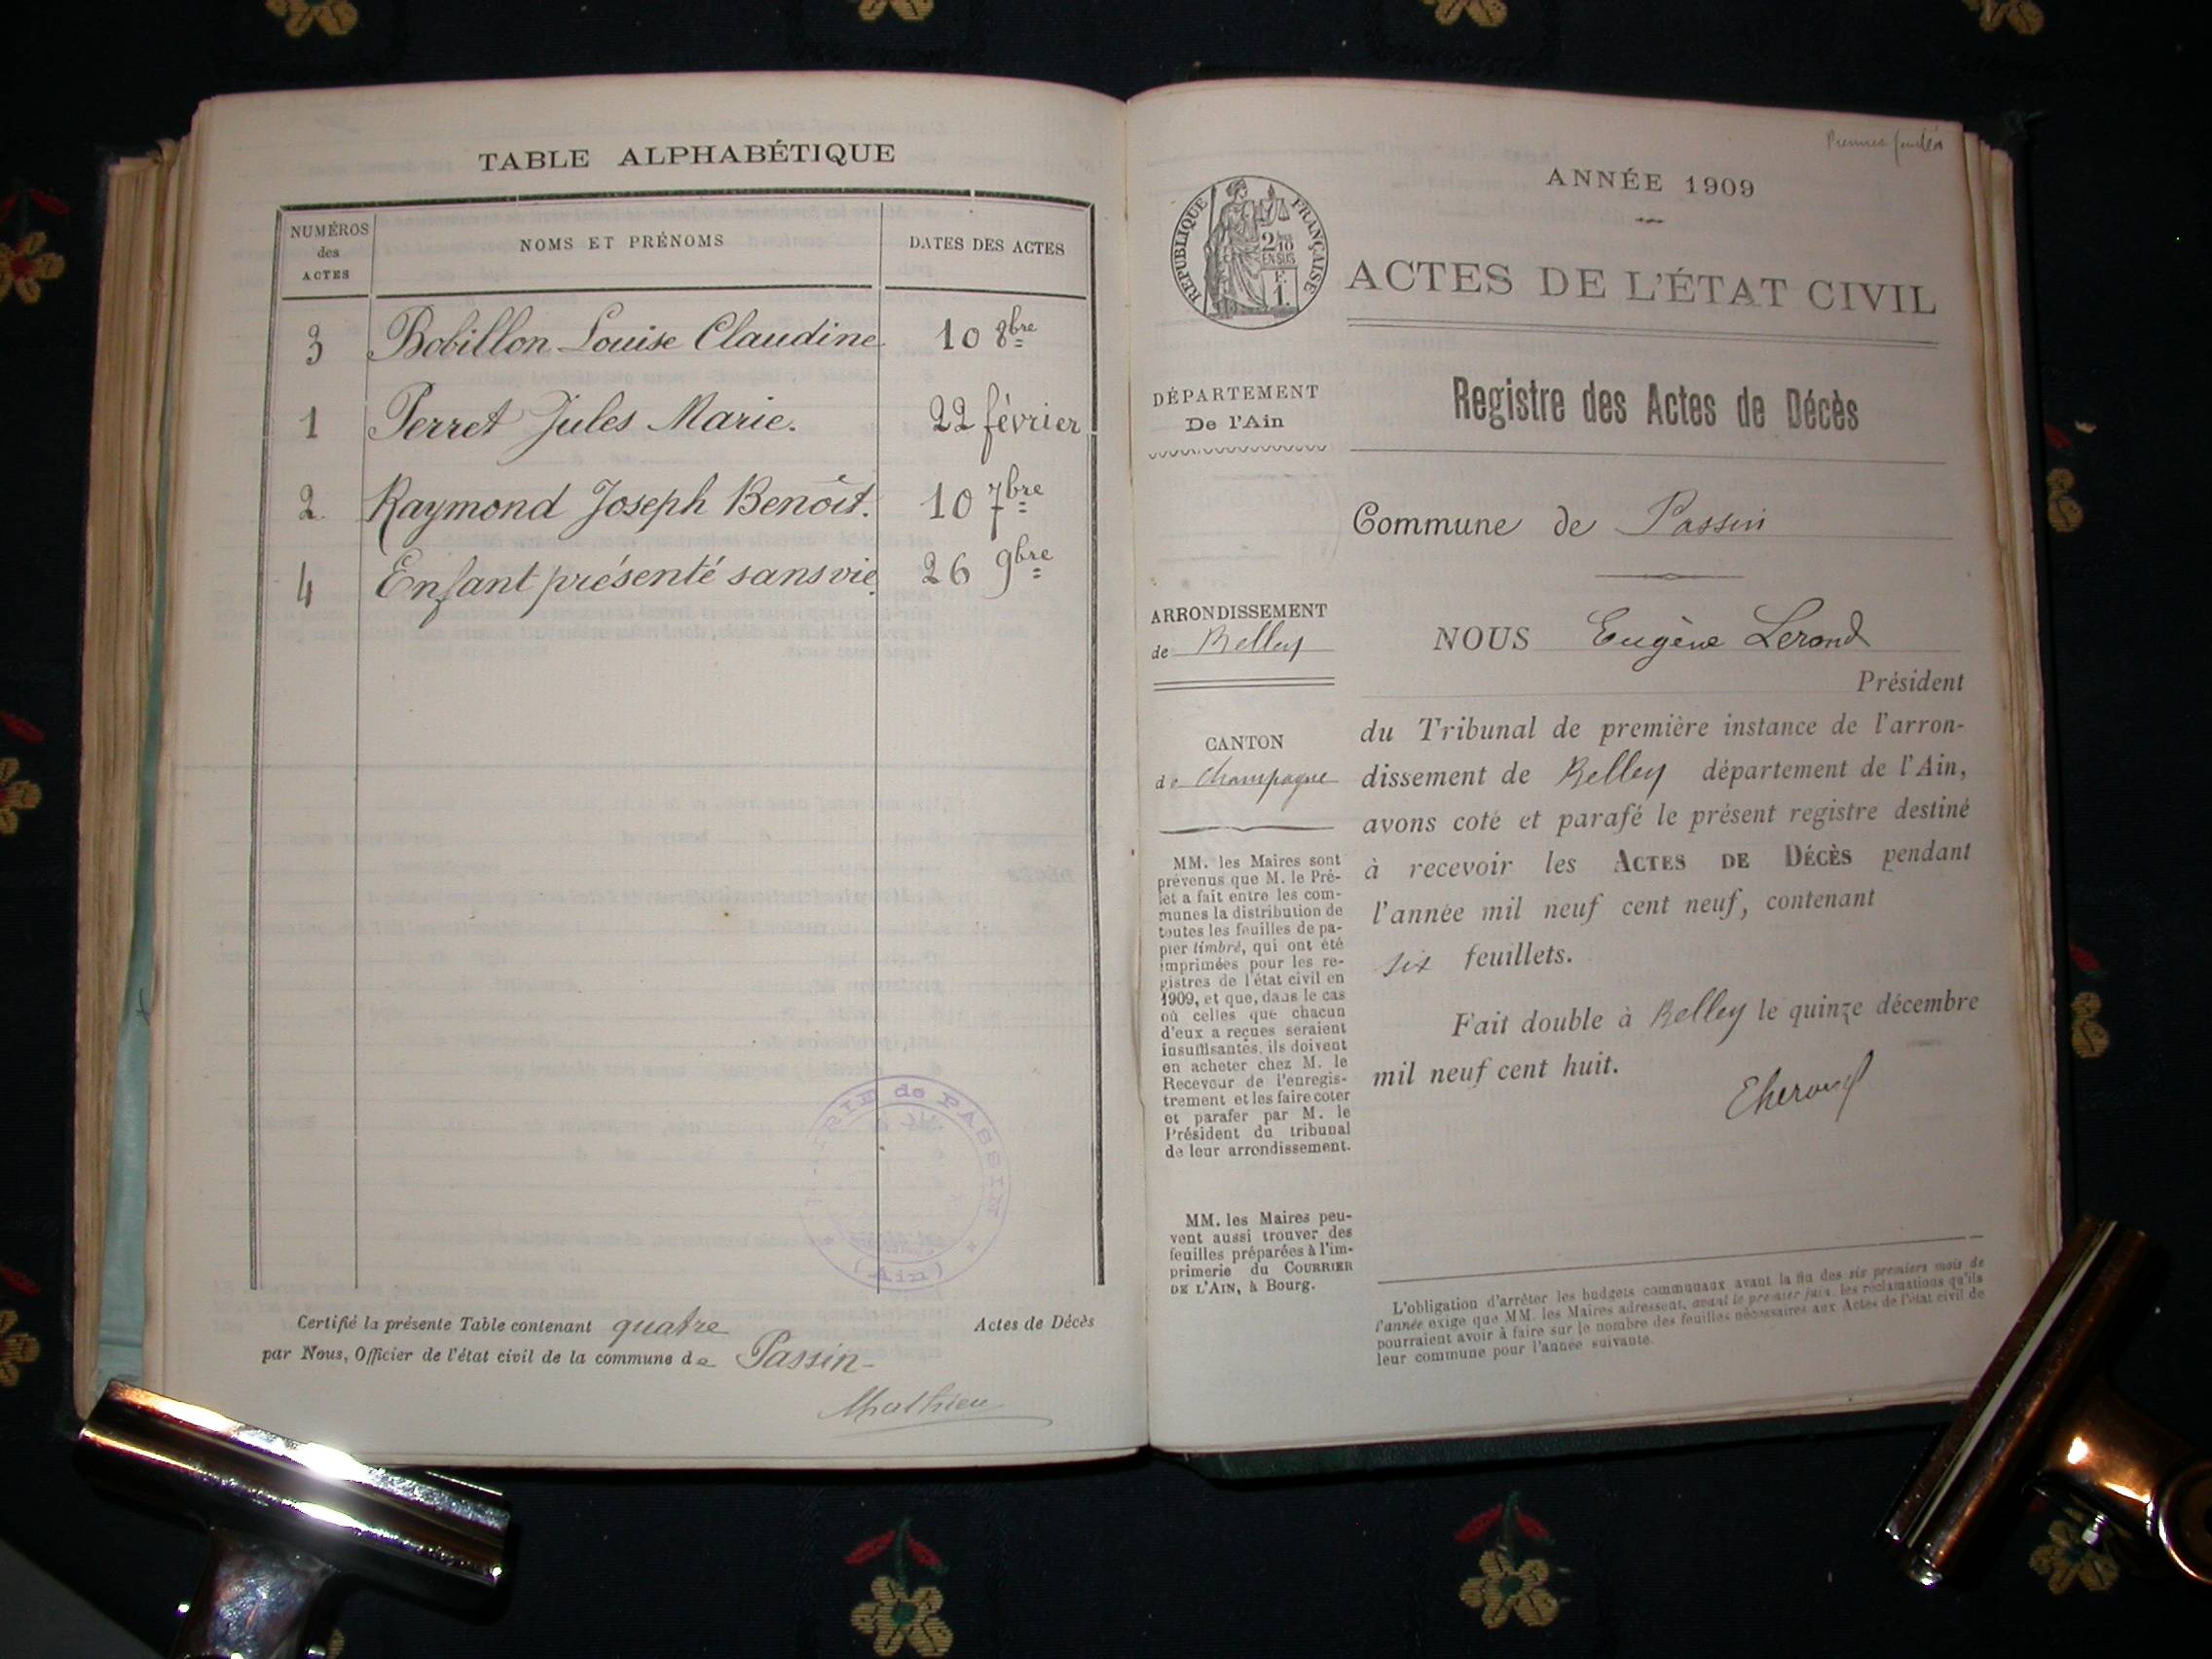 TABLE ALPHABÉTIQUE
NUMÉROS
des
ACTES
NOMS ET PRÉNOMS
DATES DES ACTES
3 Bobillon Louise Claudine 10 8bre
1 Perret Jules Marie. 22 février
2 Raymond Joseph Benoît. 10 7bre
4 Enfant présenté sans vie. 26 9bre
MAIRIE de PASSIN
(Ain)
Certifié la présente Table contenant quatre Actes de Décès
par Nous, Officier de l'état civil de la commune de Passin-
Mathieu
ANNÉE 1909
RÉPUBLIQUE FRANÇAISE
2/10
EN SUS
ACTES DE L'ÉTAT CIVIL
DÉPARTEMENT
De l'Ain
Registre des Actes de Décès
Commune de Passin
ARRONDISSEMENT
de Belley
NOUS Eugène Lerond
Président
CANTON
de Champagne
du Tribunal de première instance de l'arron-
dissement de Belley département de l'Ain,
avons coté et parafé le présent registre destiné
à recevoir les ACTES DE DÉCÈS pendant
l'année mil neuf cent neuf, contenant
six feuillets.
Fait double à Belley le quinze décembre
mil neuf cent huit.
MM. les Maires sont
prévenus que M. le Pré-
fet a fait entre les com-
munes la distribution de
toutes les feuilles de pa-
pier timbré, qui ont été
imprimées pour les re-
gistres de l'état civil en
1909, et que, dans le cas
où celles que chacun
d'eux a reçues seraient
insuffisantes, ils doivent
en acheter chez M. le
Receveur de l'enregis-
trement et les faire coter
et parafer par M. le
Président du tribunal
de leur arrondissement.
MM. les Maires peu-
vent aussi trouver des
feuilles préparées à l'im-
primerie du COURRIER
DE L'AIN, à Bourg.
L'obligation d'arrêter les budgets communaux avant la fin des six premiers mois de
l'année exige que MM. les Maires adressent, avant le premier juin, les réclamations qu'ils
pourraient avoir à faire sur le nombre des feuilles nécessaires aux Actes de l'état civil de
leur commune pour l'année suivante.